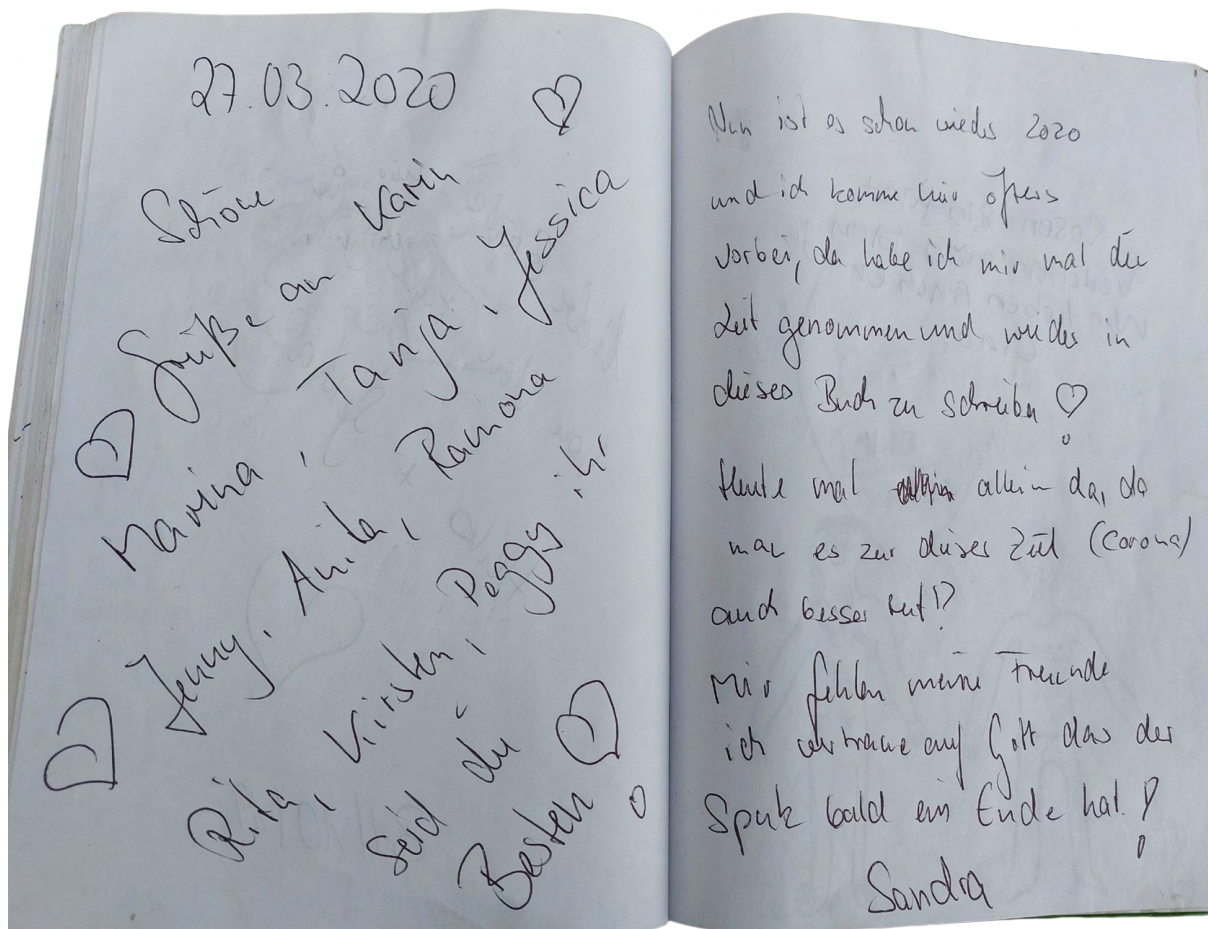 27.03.2020
Schöne
Grüße an Karin
Marina, Tanja, Jessica
Jenny, Anita, Ramona
Rita, Kirsten, Peggy ihr
seid die
Besten
Nun ist es schon wieder 2020
und ich komme hier öfters
vorbei, da habe ich mir mal die
Zeit genommen und wieder in
dieses Buch zu schreiben
Heute mal allein da, da
man es zur dieser Zeit (Corona)
auch besser tut!?
Mir fehlen meine Freunde
ich vertraue auf Gott das der
Spuk bald ein Ende hat!
Sandra